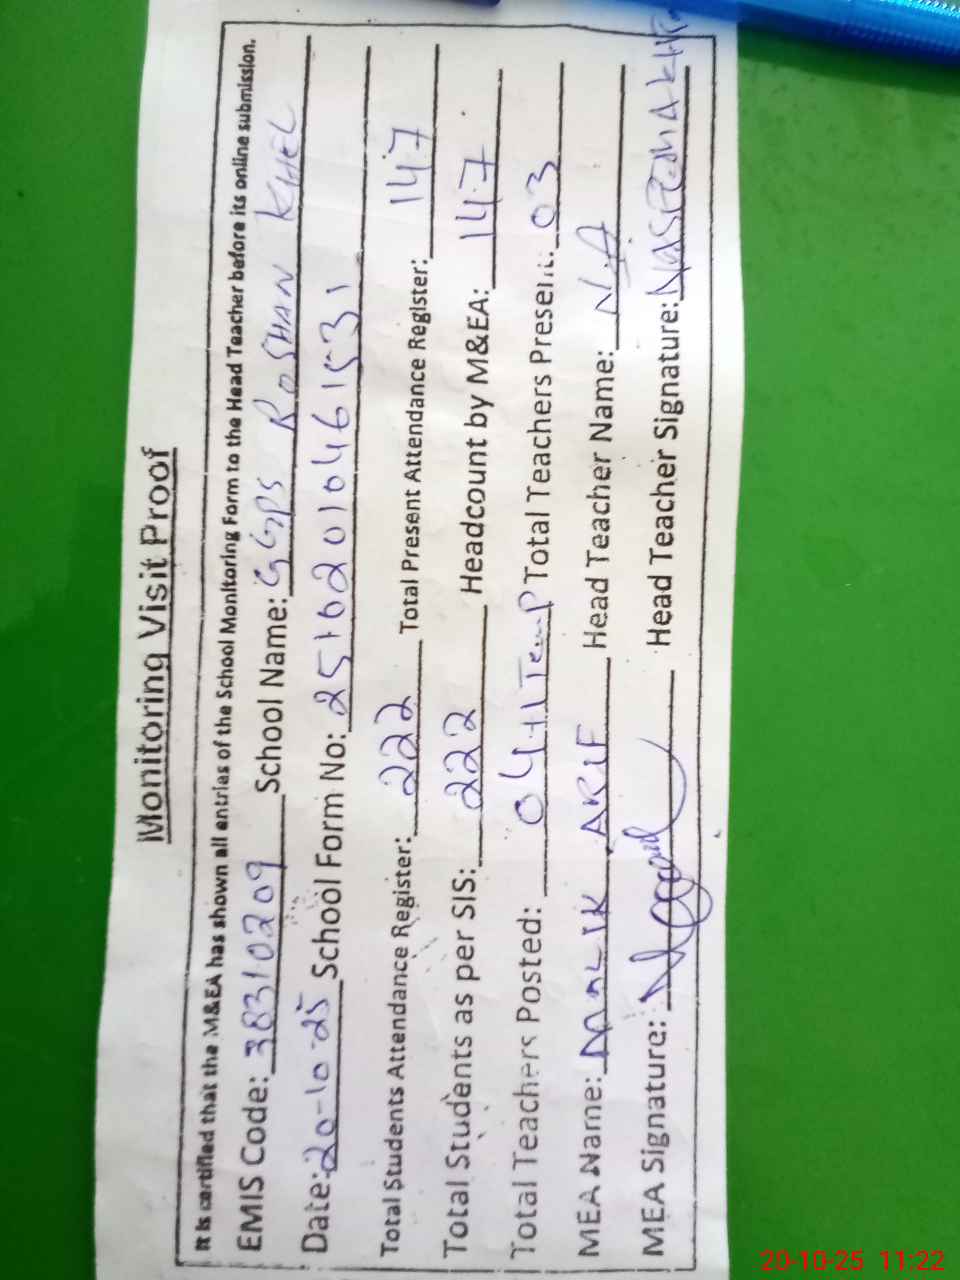 Monitoring Visit Proof
It is certified that the M&EA has shown all entries of the School Monitoring Form to the Head Teacher before its online submission.
EMIS Code: 38310209 School Name: GGPS ROSHAN KHEL
Date: 20-10-25 School Form No: 25102010461531
Total Students Attendance Register: 222 Total Present Attendance Register: 147
Total Students as per SIS: 222 Headcount by M&EA: 147
Total Teachers Posted: 04+1 Temp Total Teachers Present: 03
MEA Name: MALIK ARIF Head Teacher Name: N.A
MEA Signature: Head Teacher Signature:
20-10-25 11:22